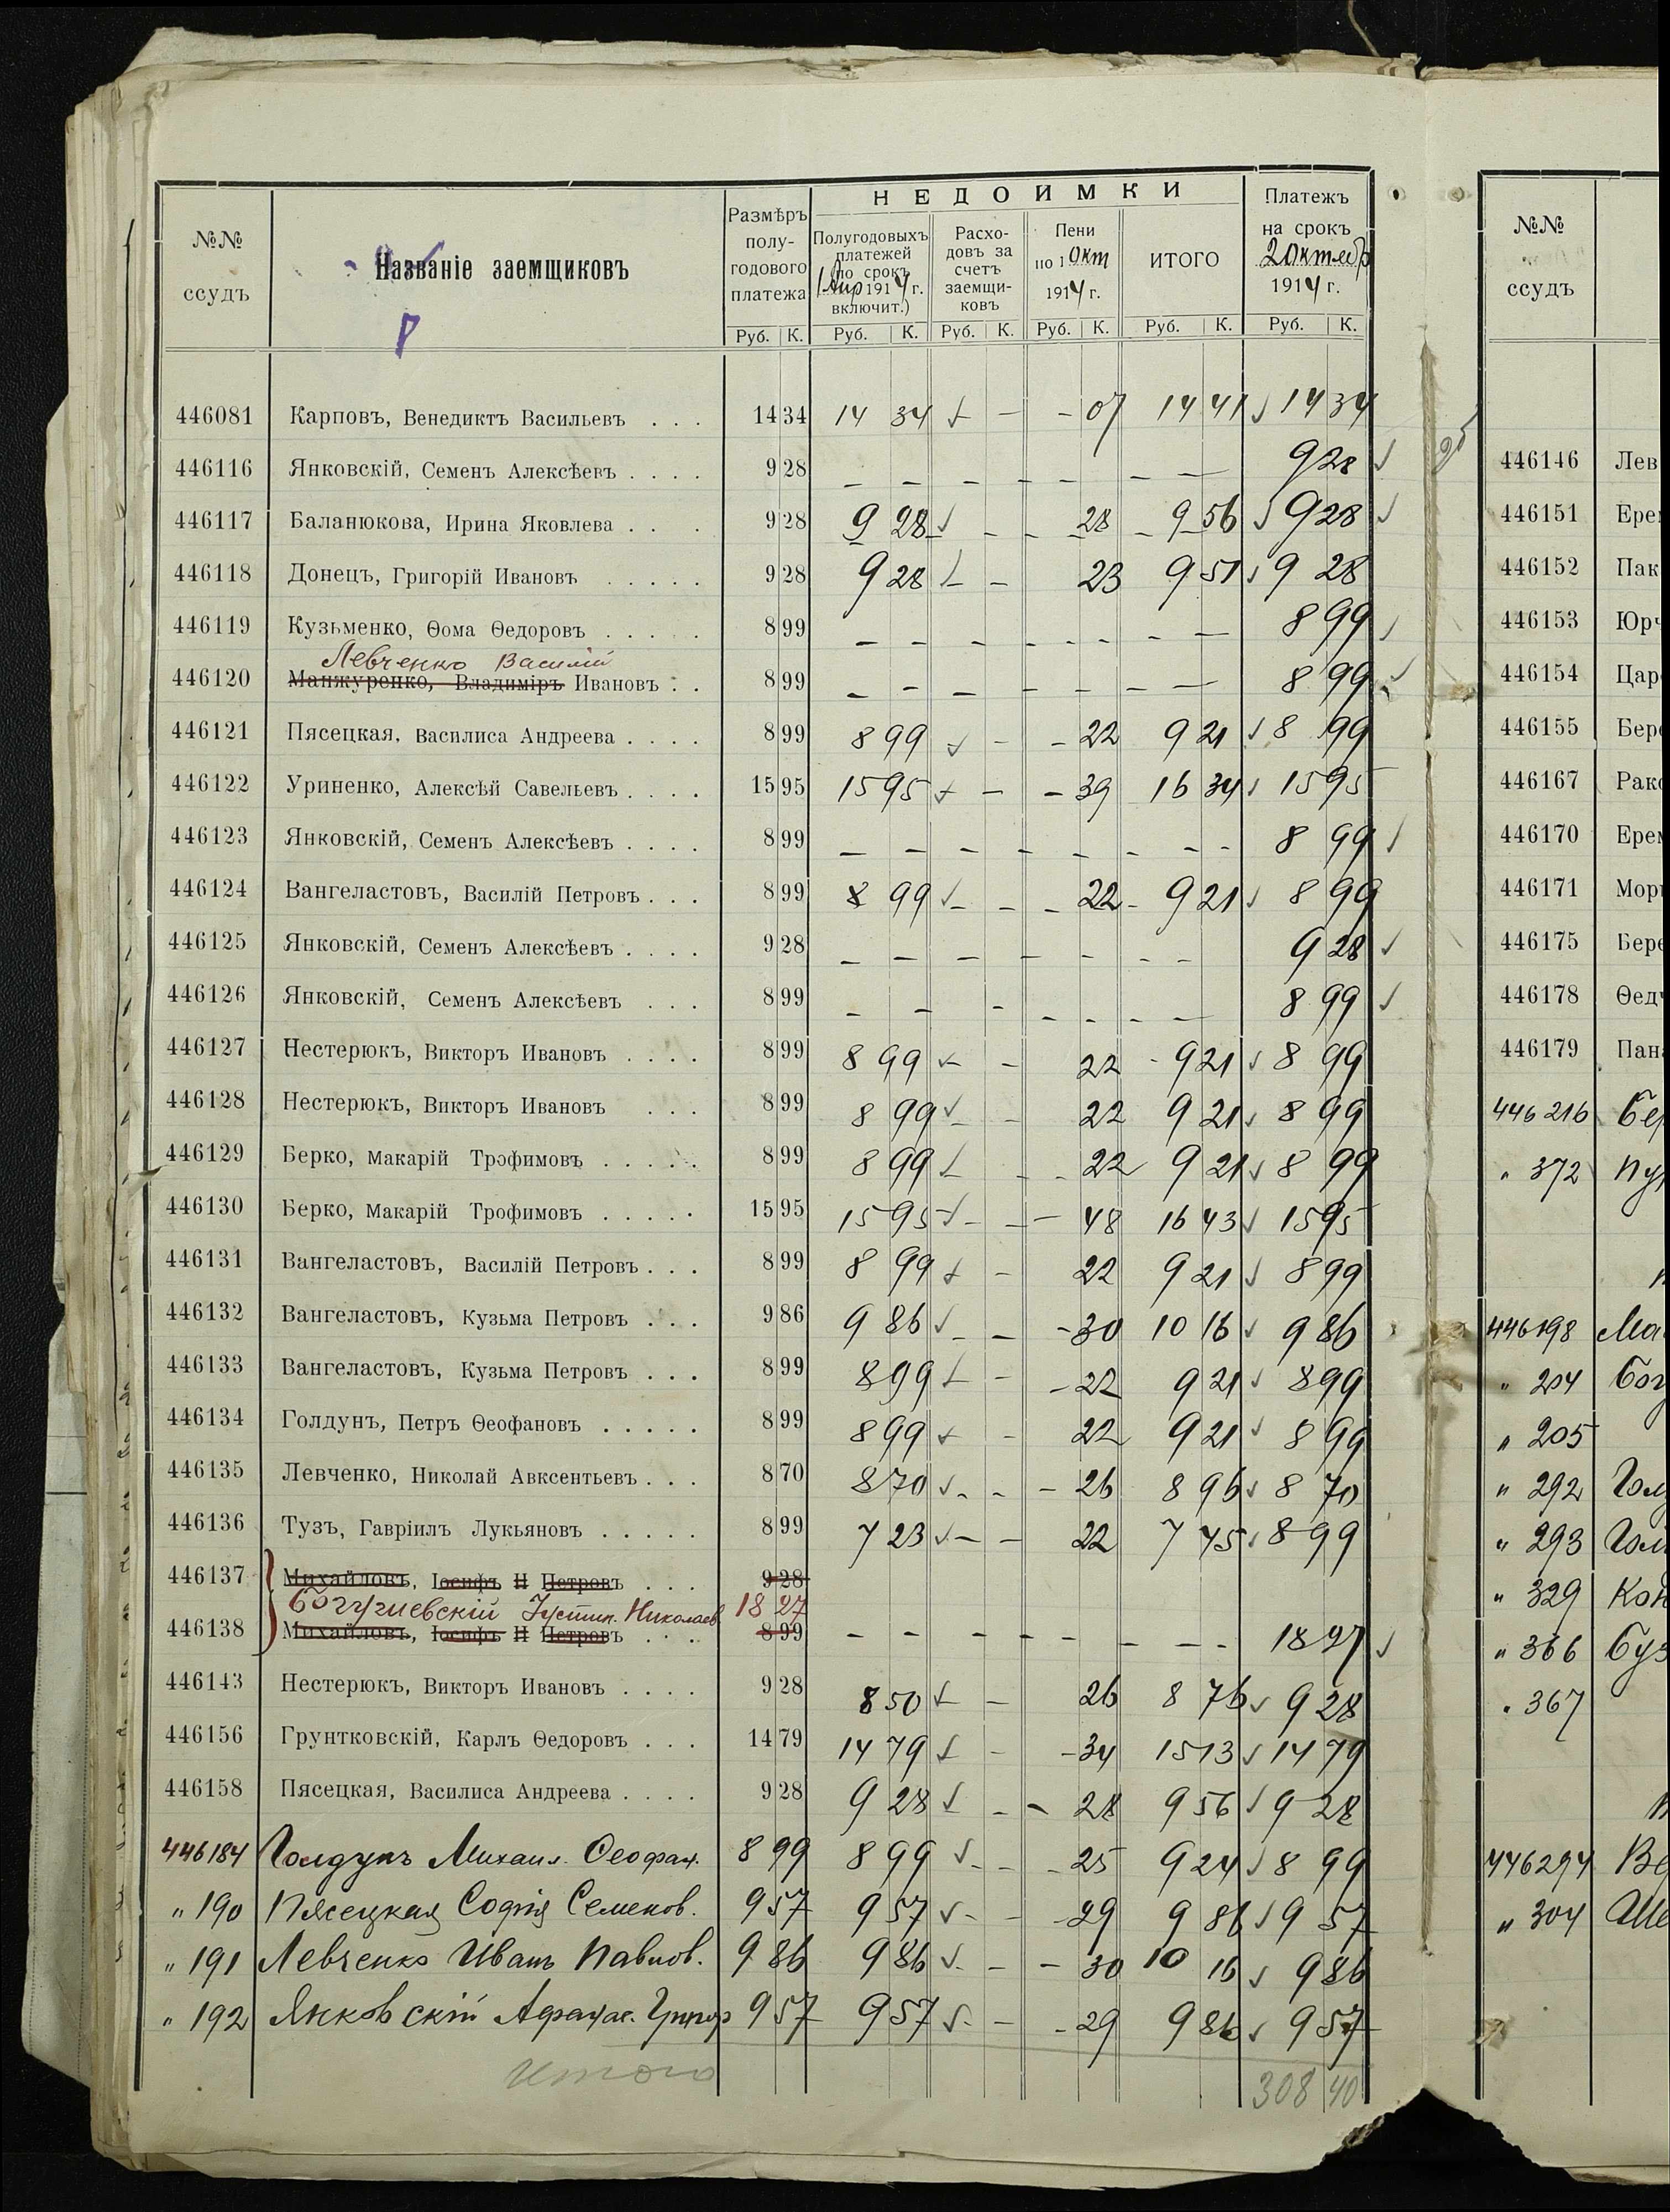 №№ ссудъ | Названіе заемщиковъ | Размѣръ полугодового платежа | НЕДОИМКИ | Платежъ на срокъ 2 октябр 1914 г. | №№ ссудъ
Полугодовыхъ платежей по срокъ 1 Апр 1914 г. включит.) | Расходовъ за счетъ заемщиковъ | Пени по 1 Окт 1914 г. | ИТОГО
Руб. К. | Руб. К. | Руб. К. | Руб. К. | Руб. К. | Руб. К.
446081 Карповъ, Венедиктъ Васильевъ . . . 14 34 14 34 ✓ – – 07 14 41 ✓ 14 34
446116 Янковскій, Семенъ Алексѣевъ . . . . 9 28 – – – – – – – 9 28 ✓ 446146 Лев
446117 Баланюкова, Ирина Яковлева . . . 9 28 9 28 ✓ – – 28 9 56 ✓ 9 28 ✓ 446151 Ере
446118 Донецъ, Григорій Ивановъ . . . . . 9 28 9 28 ✓ – 23 9 51 ✓ 9 28 446152 Пак
446119 Кузьменко, Ѳома Ѳедоровъ . . . . . 8 99 – – – – – – – – 8 99 ✓ 446153 Юрч
Левченко Василій
446120 Манжуренко, Владиміръ Ивановъ . . 8 99 – – – – – – – 8 99 ✓ 446154 Цар
446121 Пясецкая, Василиса Андреева . . . . 8 99 8 99 ✓ – – 22 9 21 ✓ 8 99 446155 Бер
446122 Уриненко, Алексѣй Савельевъ . . . . 15 95 15 95 ✓ – – 39 16 34 ✓ 15 95 446167 Рак
446123 Янковскій, Семенъ Алексѣевъ . . . . 8 99 – – – – – – – – 8 99 ✓ 446170 Ерем
446124 Вангеластовъ, Василій Петровъ . . . 8 99 8 99 ✓ – – – 22 – 9 21 ✓ 8 99 446171 Мор
446125 Янковскій, Семенъ Алексѣевъ . . . . 9 28 – – – – – – – 9 28 ✓ 446175 Бере
446126 Янковскій, Семенъ Алексѣевъ . . . 8 99 – – – – – – – 8 99 ✓ 446178 Ѳед
446127 Нестерюкъ, Викторъ Ивановъ . . . . 8 99 8 99 ✓ – 22 – 9 21 ✓ 8 99 446179 Пан
446128 Нестерюкъ, Викторъ Ивановъ . . . 8 99 8 99 ✓ – 22 9 21 ✓ 8 99 446216 Бер
446129 Берко, Макарій Трофимовъ . . . . . 8 99 8 99 ✓ – – 22 9 21 ✓ 8 99 " 372
446130 Берко, Макарій Трофимовъ . . . . . 15 95 15 95 ✓ – – 48 16 43 ✓ 15 95
446131 Вангеластовъ, Василій Петровъ . . . 8 99 8 99 ✓ – 22 9 21 ✓ 8 99
446132 Вангеластовъ, Кузьма Петровъ . . . 9 86 9 86 ✓ – – – 30 10 16 ✓ 9 86 446198 Ма
446133 Вангеластовъ, Кузьма Петровъ . . . 8 99 8 99 ✓ – – 22 9 21 ✓ 8 99 " 204 Бог
446134 Голдунъ, Петръ Ѳеофановъ . . . . . 8 99 8 99 ✓ – 22 9 21 ✓ 8 99 " 205
446135 Левченко, Николай Авксентьевъ . . . 8 70 8 70 ✓ – – – 26 8 96 ✓ 8 70 " 292 Гол
446136 Тузъ, Гавріилъ Лукьяновъ . . . . . 8 99 7 23 ✓ – – 22 7 45 ✓ 8 99 " 293 Гол
446137 Михайловъ, Іосифъ Н Петровъ . . . 9 28 " 329 Кон
Богушевскій Іустин. Николаев 18 27
446138 Михайловъ, Іосифъ Н Петровъ . . . 8 99 – – – – – – – – 18 27 ✓ " 366 Буз
446143 Нестерюкъ, Викторъ Ивановъ . . . . 9 28 8 50 ✓ – 26 8 76 ✓ 9 28 " 367
446156 Грунтковскій, Карлъ Ѳедоровъ . . . 14 79 14 79 ✓ – – 34 15 13 ✓ 14 79
446158 Пясецкая, Василиса Андреева . . . . 9 28 9 28 ✓ – – 28 9 56 ✓ 9 28
446184 Голдунъ Михаил. Ѳеофан. 8 99 8 99 ✓ – – – 25 9 24 ✓ 8 99 446294
" 190 Пясецкая Софія Семенов. 9 57 9 57 ✓ – – – 29 9 86 ✓ 9 57 " 304 Ше
" 191 Левченко Иванъ Павлов. 9 86 9 86 ✓ – – – 30 10 16 ✓ 9 86
" 192 Янковскій Афанас. Григор 9 57 9 57 ✓ – – – 29 9 86 ✓ 9 57
Итого 308 40